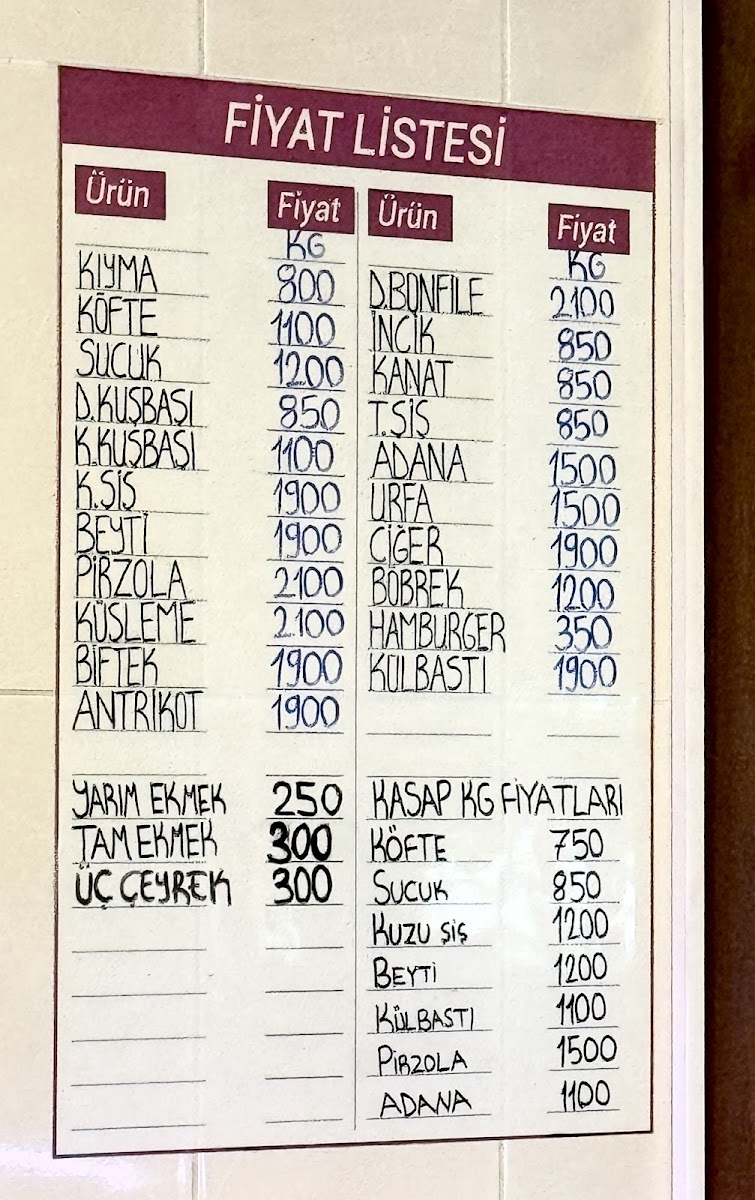 FİYAT LİSTESİ
Ürün Fiyat
KG
KIYMA 800
KÖFTE 1100
SUCUK 1200
D.KUŞBAŞI 850
K.KUŞBAŞI 1100
K.ŞİŞ 1900
BEYTİ 1900
PİRZOLA 2100
KÜŞLEME 2100
BİFTEK 1900
ANTRİKOT 1900
YARIM EKMEK 250
TAM EKMEK 300
ÜÇ ÇEYREK 300
Ürün Fiyat
KG
D.BONFİLE 2100
İNCİK 850
KANAT 850
T.ŞİŞ 850
ADANA 1500
URFA 1500
CİĞER 1900
BÖBREK 1200
HAMBURGER 350
KÜLBASTI 1900
KASAP KG FİYATLARI
KÖFTE 750
SUCUK 850
KUZU ŞİŞ 1200
BEYTİ 1200
KÜLBASTI 1100
PİRZOLA 1500
ADANA 1100